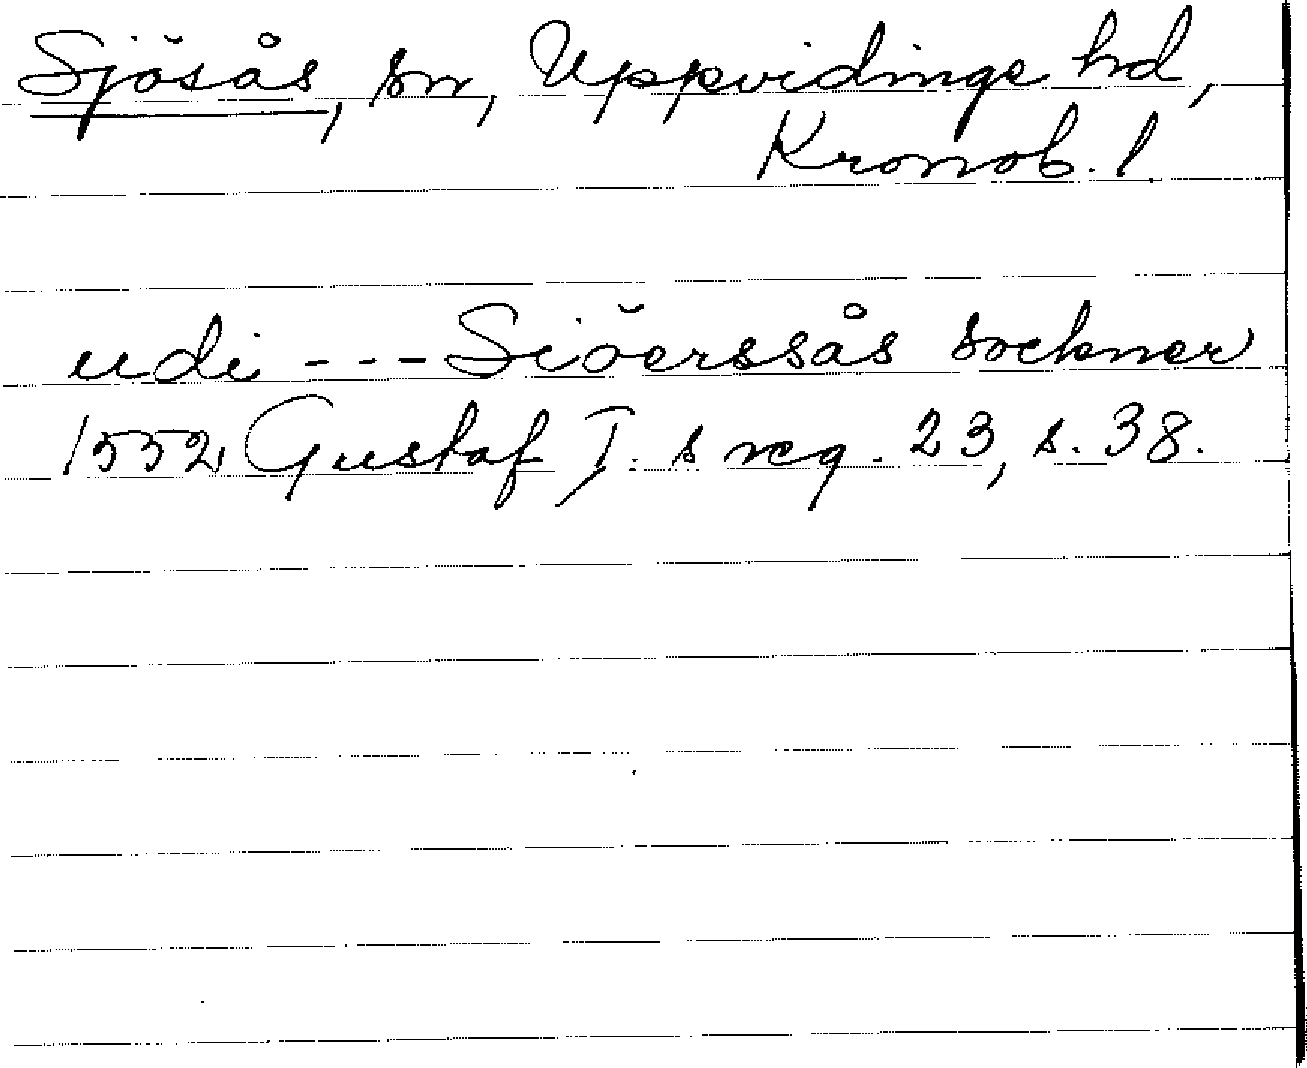 Sjösås, sn, Uppvidinge hd,
Kronob. l.
udi --- Siöerssås sockner
1552 Gustaf I:s reg. 23, s. 38.